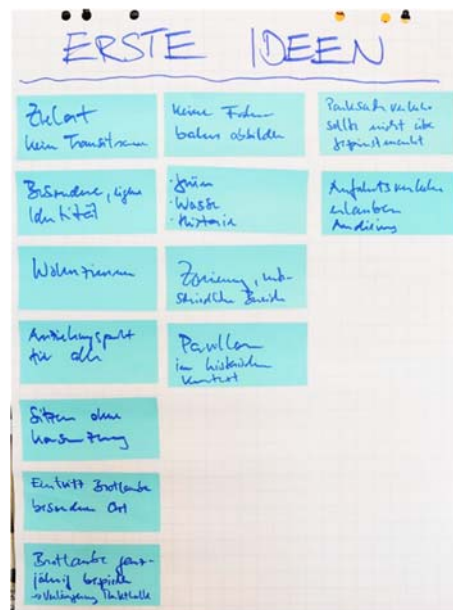 ERSTE IDEEN
Zielort
kein Transitraum
Besondere, eigene
Identität
Wohnzimmer
Anziehungspunkt
für alle
Sitzen ohne
Konsumzwang
Eintritt Brotlaube
besonderer Ort
Brotlaube ganz-
jährig bespielen
→ Verlängerung Markthalle
keine Fahr-
bahn abbilden
· Grün
· Wasser
· Historie
Zonierung, unter-
schiedliche Bereiche
Pavillon
im historischen
Kontext
Parksuchverkehr
sollte nicht über
Anfahrtsverkehr
erlauben
Andienung